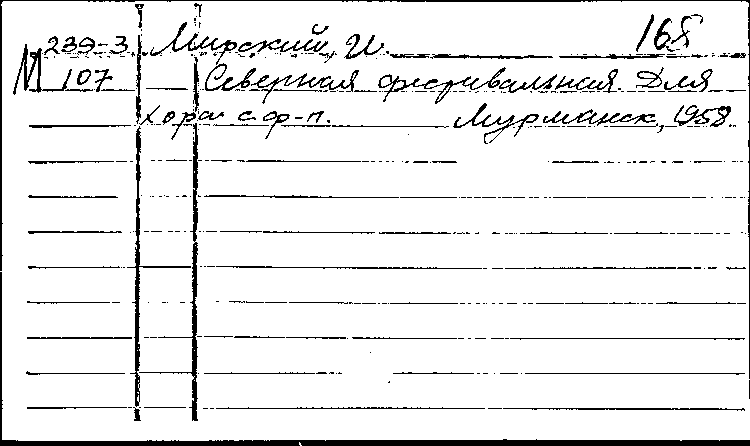 239-3 Мирский, И. 168
М 107 Северная фестивальная. Для
хора с ф-п. Мурманск, 1958